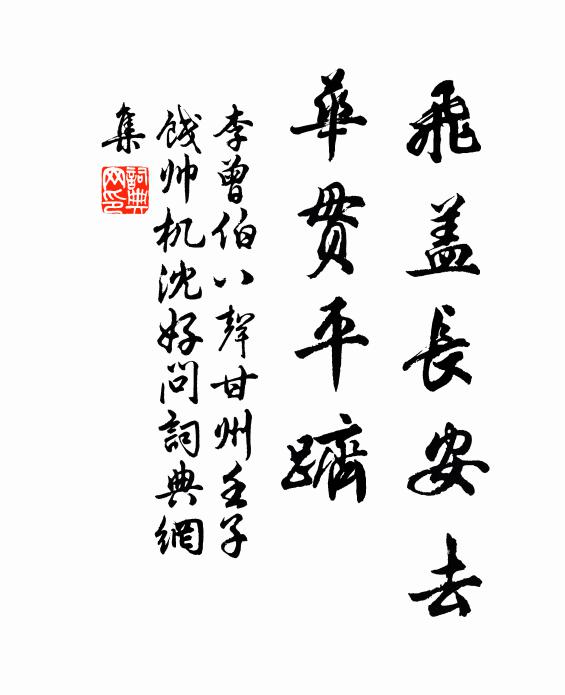 飛盖長安去
華贯平躋
李曾伯八聲甘州壬子
餞帅机沈好问詞典網
集
詞典网印